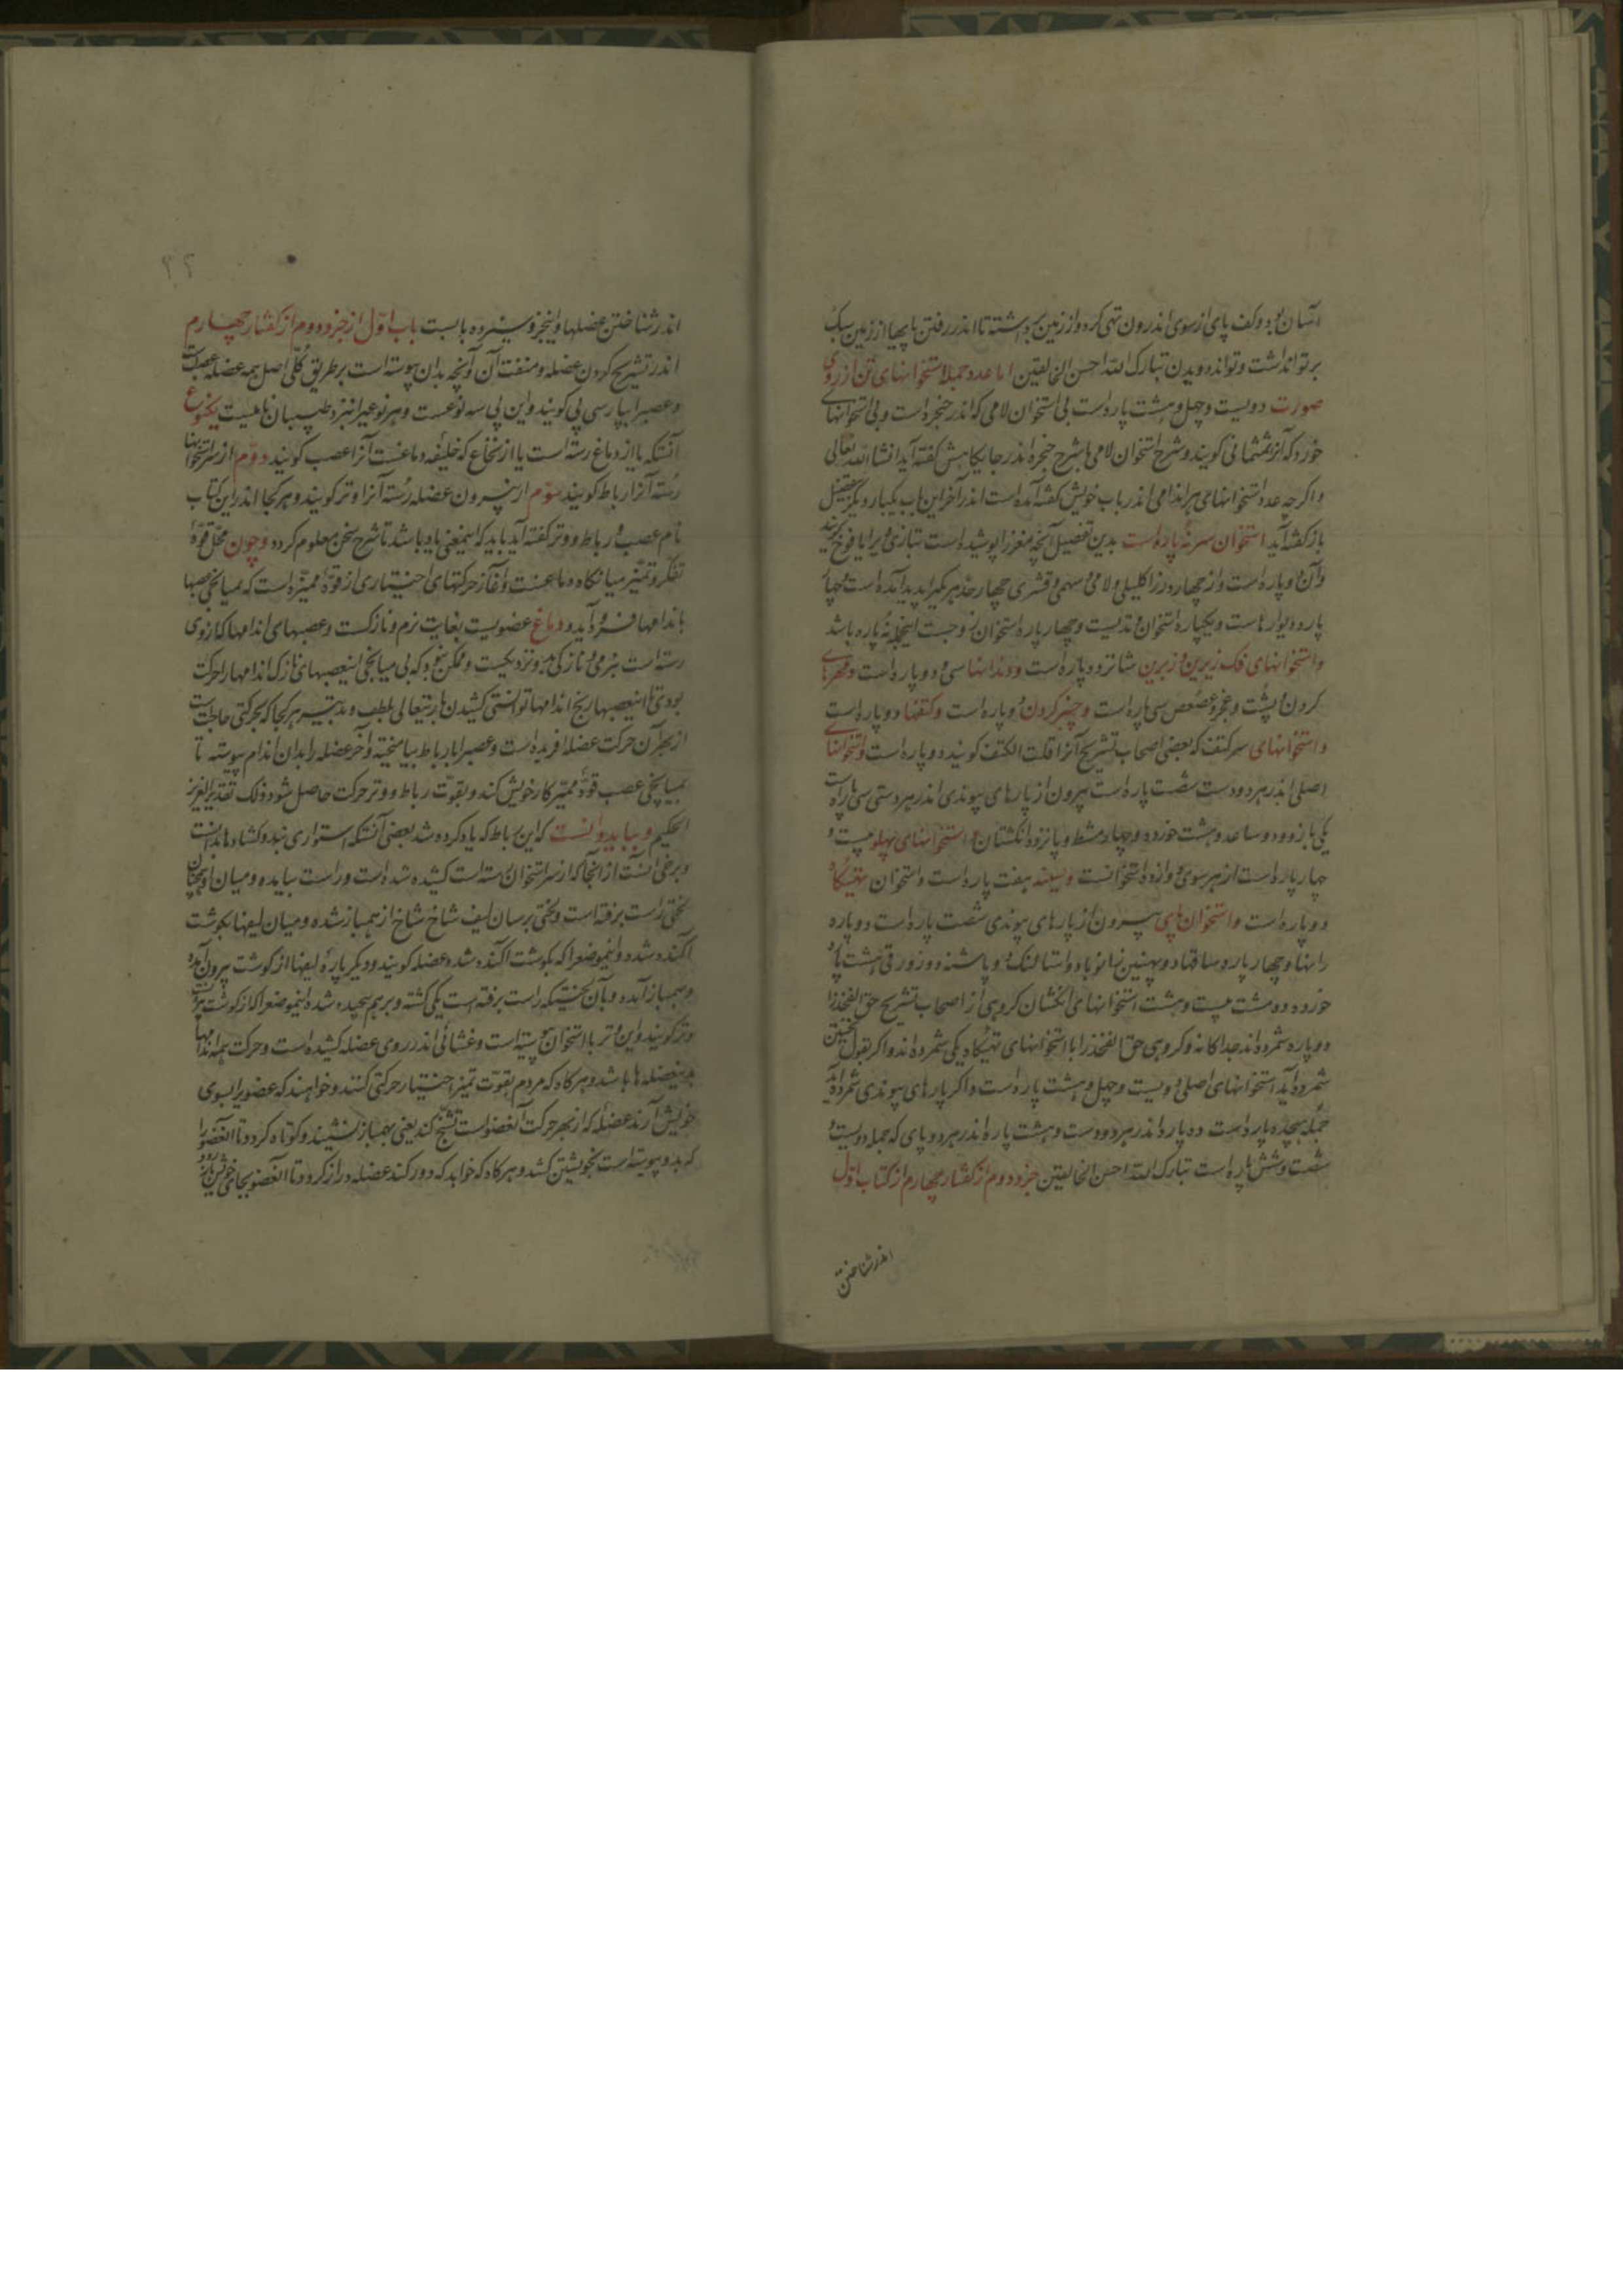 آسان بود و کف پای از سوی اندرون تهی کرد و از زمین برداشته تا اندر رفتن پایها از زمین سبک
بر تواند داشت و تواند دویدن تبارک الله احسن الخالقین اما عدد جمله استخوانهای تن از روی
صورت دویست و چهل و هشت پاره است بی استخوان لامی که اندر حنجره است و بی استخوانهای
خورد که آنرا سمسمانی کویند و شرح استخوان لامی با شرح حنجره اندر جایکاهش کفته آید انشاالله تعالی
و اکرچه عدد استخوانهای هر اندامی اندر باب خویش کفته آمده است اندر آخر این باب یکبار دیکر بتفضیل
باز کفته آید استخوان سر نه پاره است بدین تفصیل آنچه مغز را پوشیده است بتازی ویرا یافوخ کویند
و آن دو پاره است و از چهار درز اکلیلی و لامی و سهمی و قشری چهار حد هر یکی را پدید آمده است و چهار
پاره دیوارهاست و یکپاره استخوان وتدیست و چهار پاره استخوان زوجست اینجمله نه پاره باشد
و استخوانهای فک زبرین و زیرین شانزده پاره است و دندانها سی و دو پاره است و مهرهای
کردن و پشت و عجز و عصعص سی پاره است و چنبر کردن دو پاره است و کتفها دو پاره است
و استخوانهای سر کتف که بعضی اصحاب تشریح آنرا قلت الکتف کویند دو پاره است و استخوانهای
اصلی اندر هر دو دست شصت پاره است بیرون از پارهای پیوندی اندر هر دستی سی پاره است
یکی بازو و دو ساعد و هشت خورده و چهار مشط و پانزده انکشتان و استخوانهای پهلو بیست و
چهار پاره است از هر سوی دوازده استخوانست و سینه هفت پاره است و استخوان تهیکاه
دو پاره است و استخوان پای بیرون از پارهای پیوندی شصت پاره است دو پاره
رانها و چهار پاره ساقها و دو پهنین زانو با دو اشتالنک و دو پاشنه و دو زورقی هشت پاره
خورده و ده مشت بیست و هشت استخوانهای انکشتان کروهی از اصحاب تشریح حق الفخذ را
دو پاره شمرده اند جداکانه و کروهی حق الفخذ را با استخوانهای تهیکاه یکی شمرده اند و اکر بقول نخستین
شمرده آید استخوانهای اصلی دویست و چهل و هشت پاره است و اکر پارهای پیوندی شمرده آید
جمله هجده پاره است ده پاره اندر هر دو دست و هشت پاره اندر هر دو پای که جمله دویست و
شصت و شش پاره است تبارک الله احسن الخالقین جزو دوم از کفتار چهارم از کتاب اول
اندر شناختن
۲۲
اندر شناختن عضلها و اینجزو سیزده بابست باب اول از جزو دوم از کفتار چهارم
اندر تشریح کردن عضله و منفعت آن و آنچه بدان پیوسته است بر طریق کلی اصل همه عضله عصب است
و عصب را بپارسی پی کویند و این پی سه نوعست و هر نوعی را نزد طبیبان نامیست یکنوع
آنستکه یا از دماغ رسته است یا از نخاع که خلیفه دماغست آنرا عصب کویند دوم از سر استخوانها
رسته آنرا رباط کویند سوم از بیرون عضله رسته آنرا وتر کویند و هر کجا اندر این کتاب
نام عصب و رباط و وتر کفته آید باید که اینمعنی یاد باشد تا شرح سخن معلوم کردد و چون محل قوة
تفکر و تمیز میانکاه دماغست و آغاز حرکتهای اختیاری از قوة ممیزه است که بمیانجی عصبها
باندامها فرود آید و دماغ عضویست بغایت نرم و نازکست و عصبهای اندامها که از وی
رسته است بنرمی و نازکی بدو نزدیکست و ممکن نبود که بی میانجی اینعصبهای نازک اندامها را حرکت
بودی تا اینعصبها رنج اندامها توانستی کشیدن باریتعالی بلطف و تدبیر هر کجا که بحرکتی حاجت است
از بهر آن حرکت عضله آفریده است و عصب را با رباط بیامیخته و آخر عضله را بدان اندام پیوسته تا
بمیانجی عصب قوة ممیزه کار خویش کند و بقوت رباط و وتر حرکت حاصل شود ذلک تقدیر العزیز
الحکیم و بباید دانست که این رباط که یاد کرده شد بعضی آنستکه استواری بند و کشادها بدانست
و برخی آنست از آنجا که از سر استخوان رسته است کشیده شده است و راست بیامده و میان او همچنان
لختی راست برفته است و لختی برسان لیف شاخ شاخ از هم باز شده و میان لیفها بکوشت
آکنده شده و اینموضع را که بکوشت آکنده شده عضله کویند و دیکر باره لیفها از کوشت بیرون آمده
و بهم باز آمده و بآن لختیکه راست برفته است یکی کشته و بر هم پیچیده شده اینموضع را که از کوشت بیرون است
وتر کویند و این وتر با استخوان پیوسته است و غشائی اندر روی عضله کشیده است و حرکت همه اندامها
بدینعضله ها باشد و هر کاه که مردم بقوت تمیز و اختیار حرکتی کنند و خواهند که عضویرا بسوی
خویش آرند عضله که از بهر حرکت آنعضو است تشنج کند یعنی بهم باز نشیند و کوتاه کردد تا آنعضو را
که بدو پیوسته است بخویشتن کشد و هر کاه که خواهد که دور کند عضله دراز کردد تا آنعضو بجای خویش باز رود